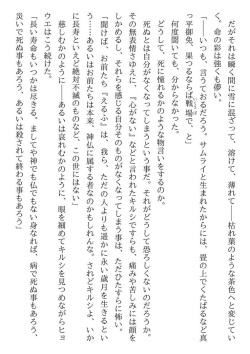 だがそれは瞬く間に雪に混ざって、溶けて、薄れて――枯れ葉のような茶色へと変じていく、命の彩は強くも儚い。
――いつも、言うておるだろう。サムライと生まれたからには、畳の上でくたばるなど真っ平御免。果つるならば戦場で、と」
何度聞いても、分からなかった。
どうして、死に憧れるかのような物言いをするのか。
死ぬとは自分がなくなってしまうという事だ。それがどうして恐ろしくないのだろうか。
その無表情さゆえに、"心がない"などと言われたキルシですらも、痛みや苦しみには顔をしかめるし、それらを感じる自分そのものがなくなってしまう事は、ただひたすらに怖い。
「聞けば、お前たち『えるふ』は我ら、ただの人よりも遥かに永い歳月を生きるという……あるいはお前たちは本来、神仏に属する者なのかもしれんな。されどキルシよ、いかに長寿といえど絶対不滅のものなど、この世にはない」
慈しむかのように――あるいは哀れむかのように――眼を細めてキルシを見つめながらヒョウエはこう続けた。
「長い寿命もいつかは尽きる。ましてや神でも仏でもない身なれば、病で死ぬ事もあろう、災いで死ぬ事もあろう、あるいは殺されて終わる事もあろう」